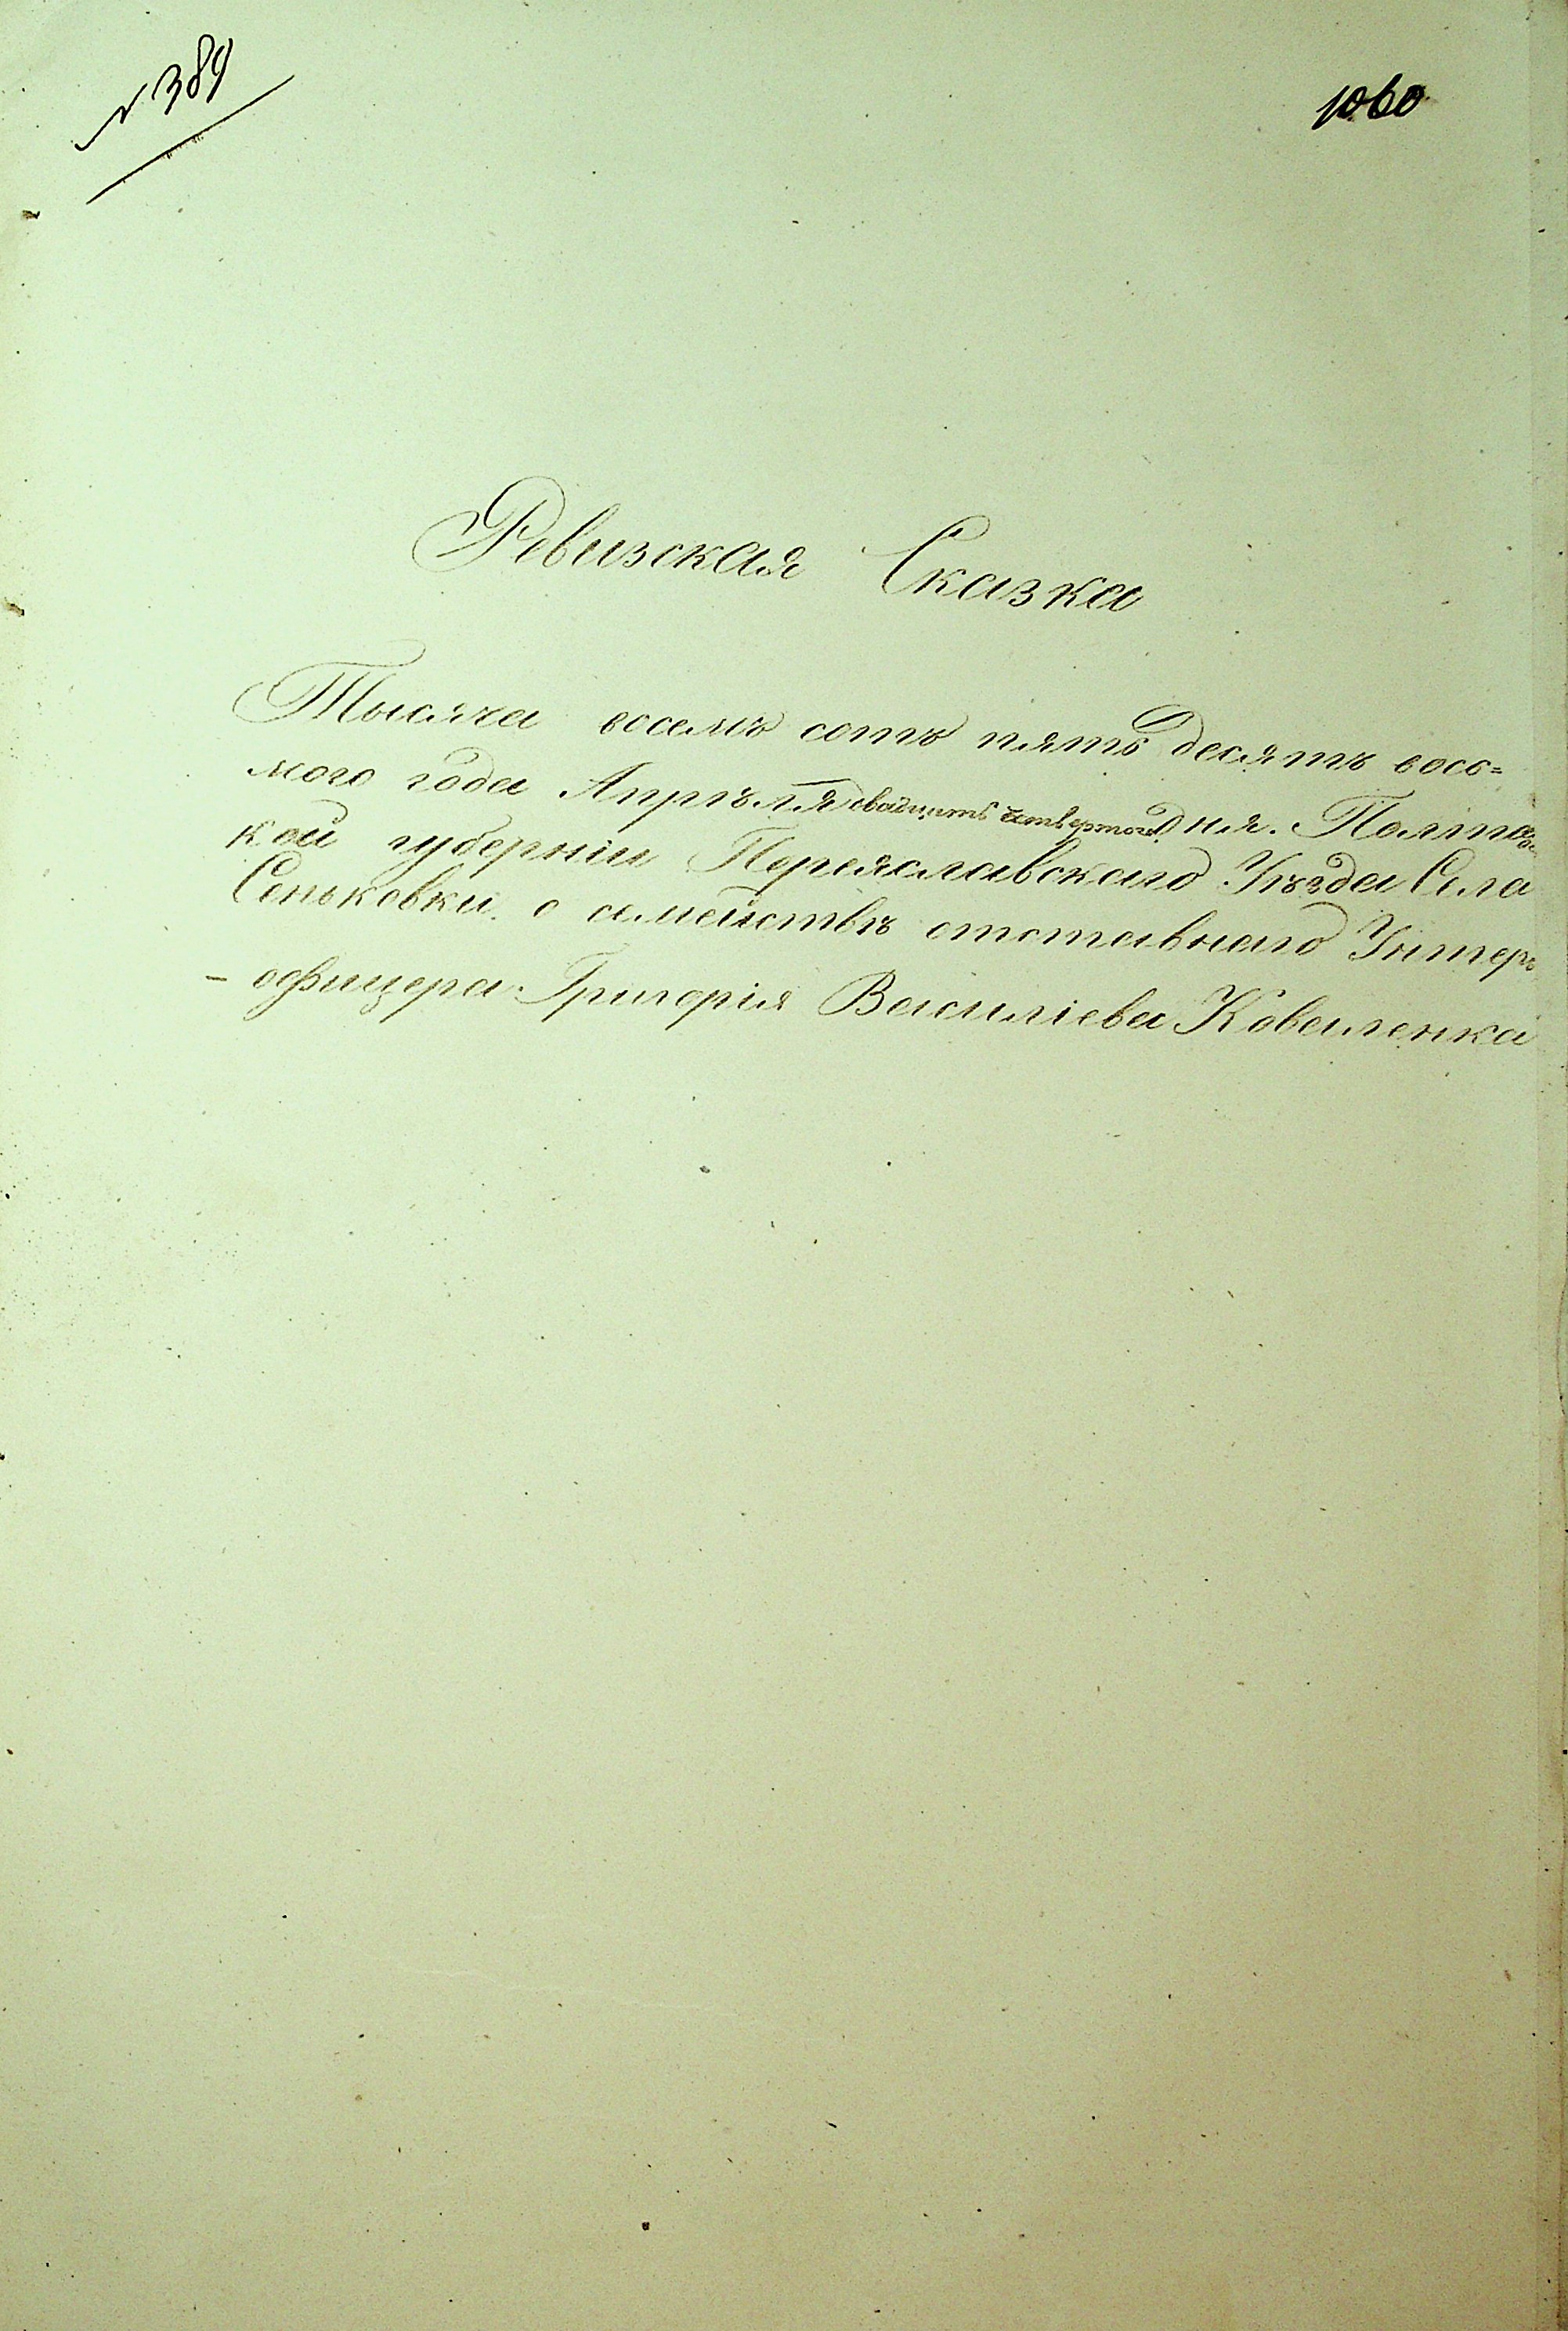 № 389
1060
Ревизская Сказка
Тысяча восемъ сотъ пять десятъ восо=
мого года Апрѣля двадцять четвертого дня. Полтавс
кой губерніи Переяславскаго Уѣзда Села
Сеньковки о семействѣ отставнаго Унтеръ
- офицера Григорія Василіева Коваленка